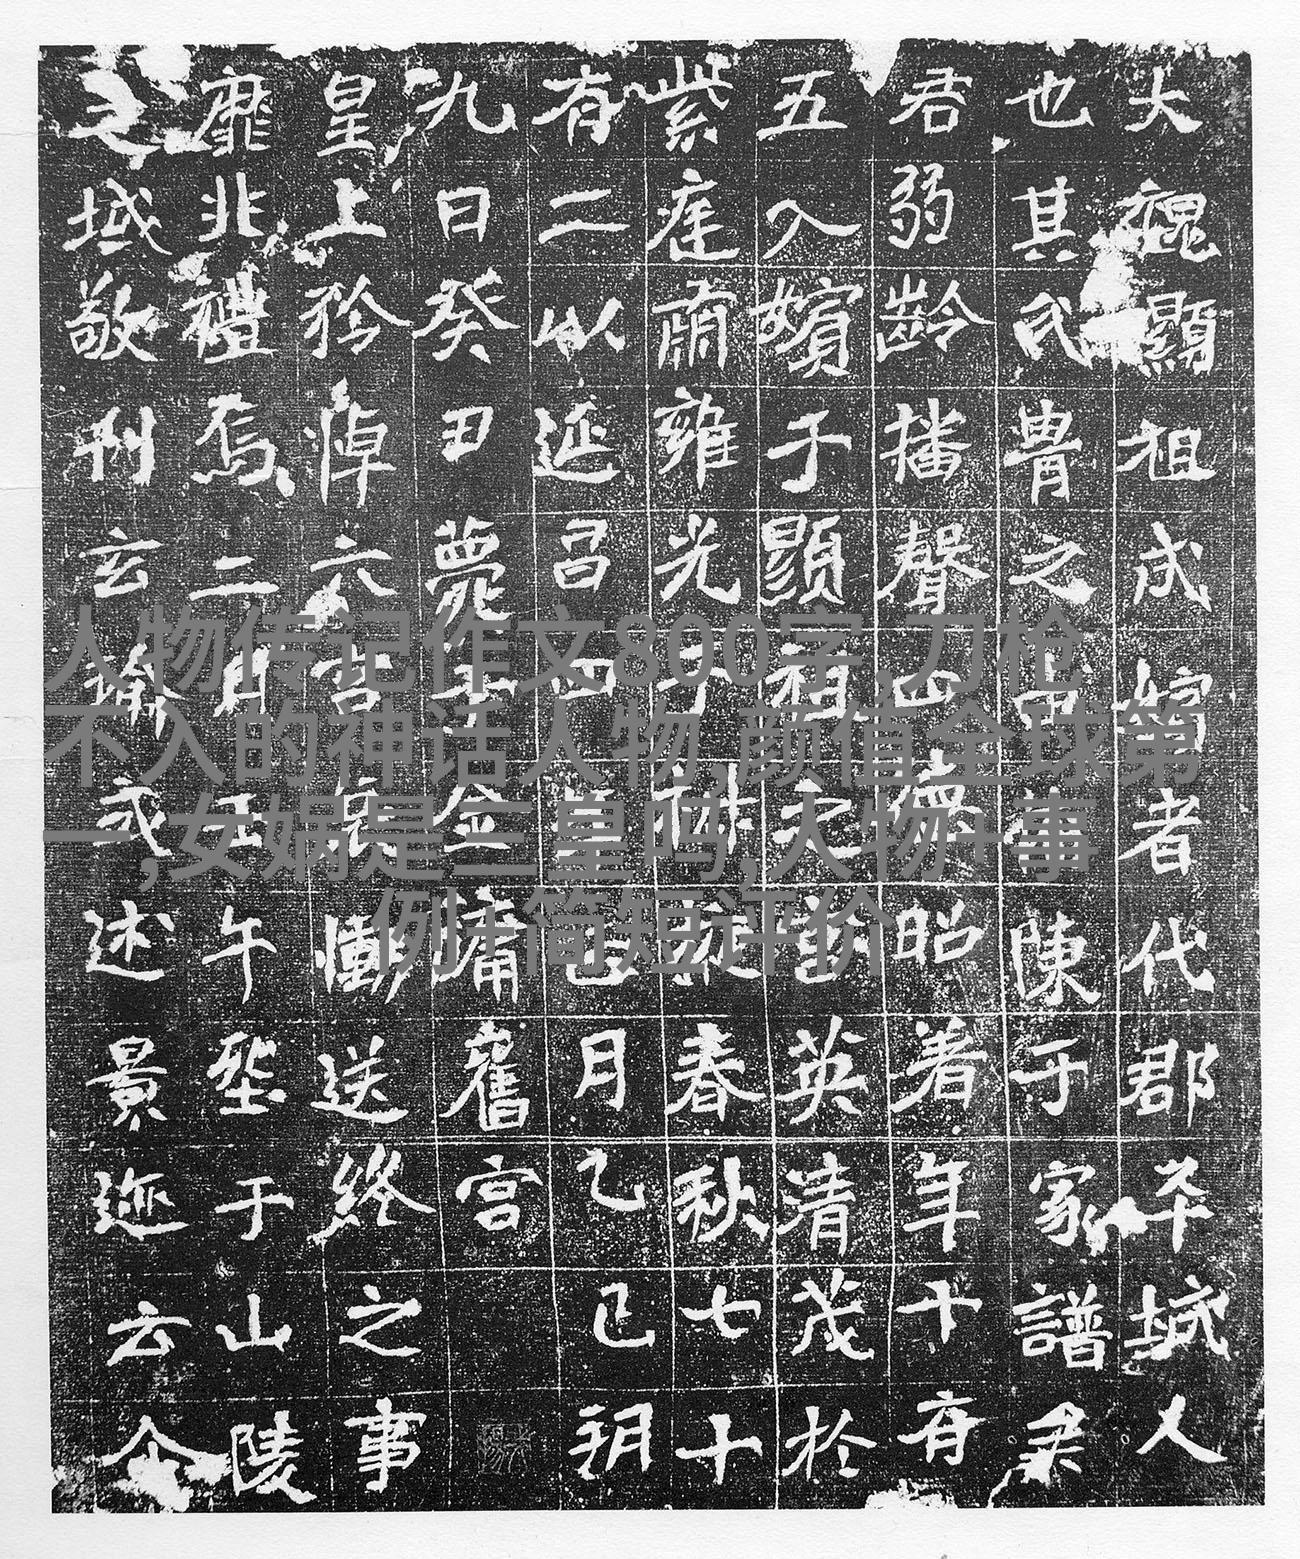 大魏顯祖成嬪者代郡平城人
也其氏冑之陳于家譜
君弱齡播聲德昭著年十有
五入嬪于顯祖英清茂於
紫庭肅雍光于春秋七十
有二以延昌四月乙巳朔
九日癸丑薨于金墉舊宮
皇上矜悼六宮哀慟送終之事
靡非禮焉二月壬午塟于山陵
之域敬刊玄瑜式述景迹云尒
人物传记作文800字,刀枪
不入的神话人物,颜值全球第
一,女娲是三皇吗,人物+事
例+简短评价